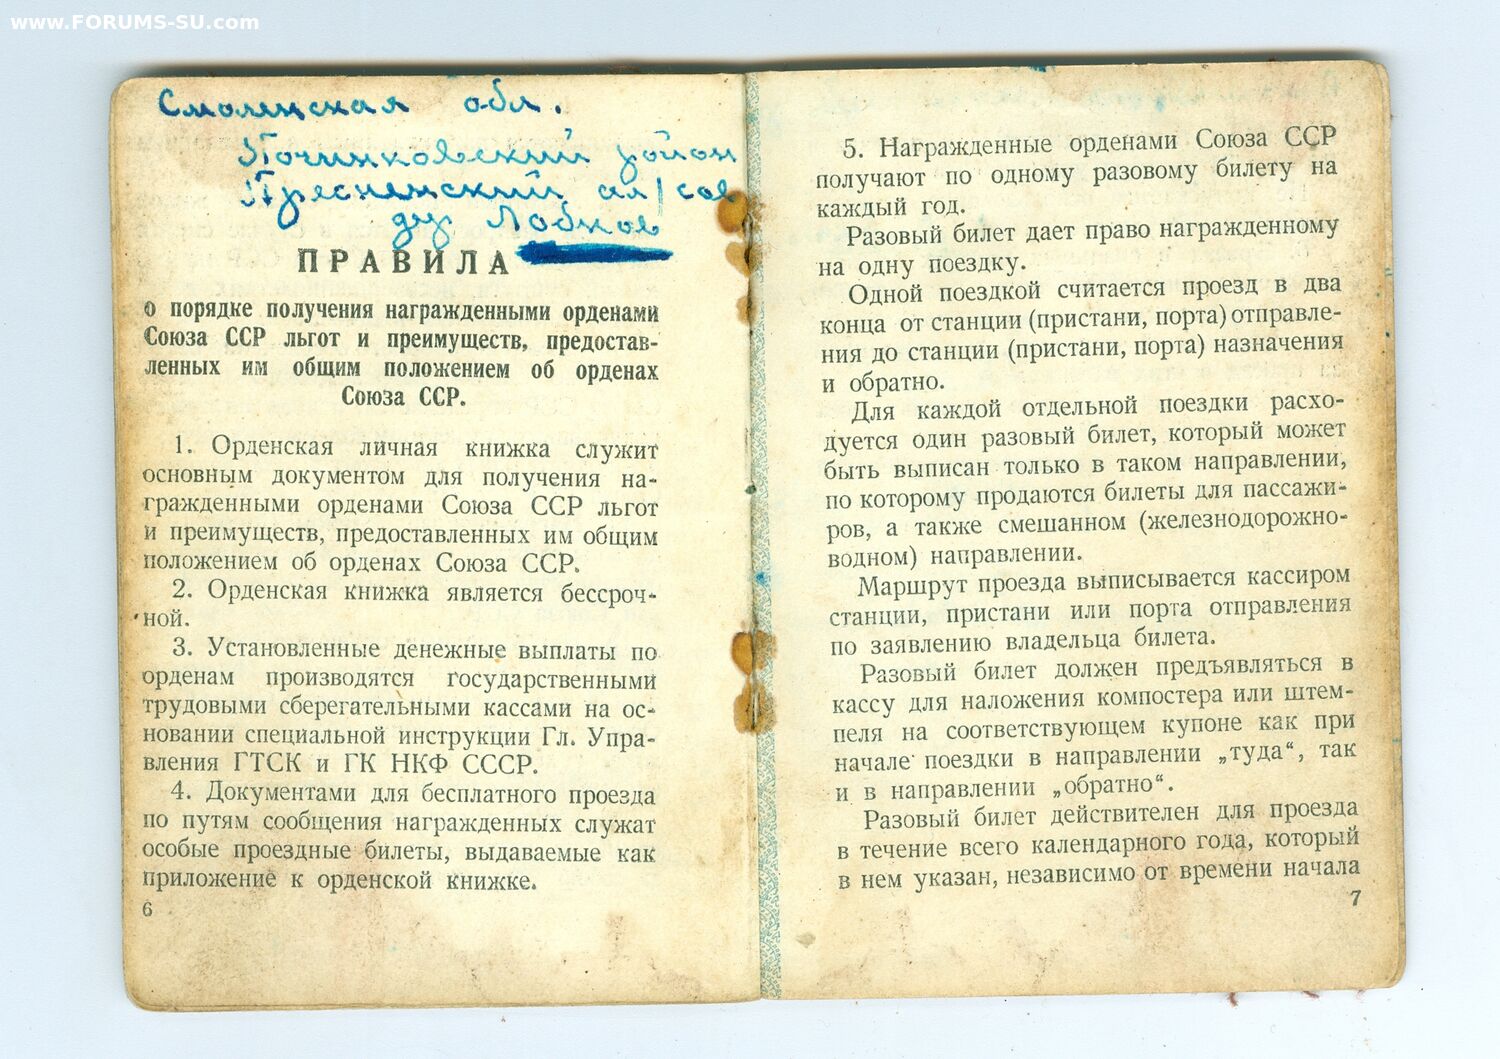 www.FORUMS-SU.com
Смоленская обл.
Починковский район
Преснянский сл/сов
дер Лобков
ПРАВИЛА
о порядке получения награжденными орденами
Союза ССР льгот и преимуществ, предостав-
ленных им общим положением об орденах
Союза ССР.
1. Орденская личная книжка служит
основным документом для получения на-
гражденными орденами Союза ССР льгот
и преимуществ, предоставленных им общим
положением об орденах Союза ССР.
2. Орденская книжка является бессроч-
ной.
3. Установленные денежные выплаты по
орденам производятся государственными
трудовыми сберегательными кассами на ос-
новании специальной инструкции Гл. Упра-
вления ГТСК и ГК НКФ СССР.
4. Документами для бесплатного проезда
по путям сообщения награжденных служат
особые проездные билеты, выдаваемые как
приложение к орденской книжке.
6
5. Награжденные орденами Союза ССР
получают по одному разовому билету на
каждый год.
Разовый билет дает право награжденному
на одну поездку.
Одной поездкой считается проезд в два
конца от станции (пристани, порта) отправле-
ния до станции (пристани, порта) назначения
и обратно.
Для каждой отдельной поездки расхо-
дуется один разовый билет, который может
быть выписан только в таком направлении,
по которому продаются билеты для пассажи-
ров, а также смешанном (железнодорожно-
водном) направлении.
Маршрут проезда выписывается кассиром
станции, пристани или порта отправления
по заявлению владельца билета.
Разовый билет должен предъявляться в
кассу для наложения компостера или штем-
пеля на соответствующем купоне как при
начале поездки в направлении „туда“, так
и в направлении „обратно“.
Разовый билет действителен для проезда
в течение всего календарного года, который
в нем указан, независимо от времени начала
7